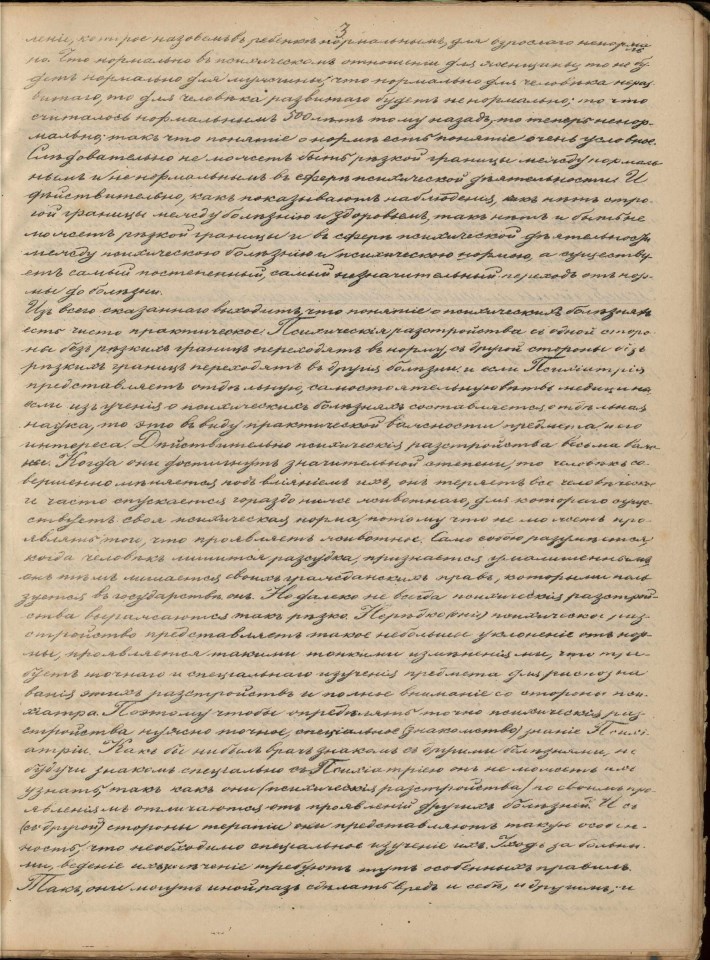 3
леніе, которое назовемъ въ ребенкѣ нормальнымъ, для взрослаго ненормаль
но. Что нормально въ психическомъ отношеніи для женщины, то не бу-
детъ нормально для мужчины; что нормально для человѣка нераз
витаго, то для человѣка развитаго будетъ ненормально; то что
считалось нормальнымъ 500 лѣтъ тому назадъ, то теперь ненор-
мально; такъ что понятіе о нормѣ есть понятіе очень условное.
Слѣдовательно не можетъ быть рѣзкой границы между нормаль
нымъ и не нормальнымъ въ сферѣ психической дѣятельности. И
дѣйствительно, какъ показываютъ наблюденія, какъ нѣтъ стро-
гой границы между болѣзнію и здоровьемъ, такъ нѣтъ и быть не
можетъ рѣзкой границы и въ сферѣ психической дѣятельности
между психическою болѣзнію и психическою нормою, а существу-
етъ самый постепенный, самый незначительный переходъ отъ нор-
мы до болѣзни.
Изъ всего сказаннаго выходитъ, что понятіе о психическихъ болѣзняхъ
есть чисто практическое. Психическія разстройства съ одной сторо-
ны безъ рѣзкихъ границъ переходятъ въ норму, съ другой стороны безъ
рѣзкихъ границъ переходятъ въ другія болѣзни. и если Психіатрія
представляетъ отдѣльную, самостоятельную вѣтвь медицины,
если изъ ученія о психическихъ болѣзняхъ составляется отдѣльная
наука, то это въ виду практической важности предмета и его
интереса. Дѣйствительно психическія разстройства весьма важ-
ны. Когда они достигнутъ значительной степени, то человѣкъ со-
вершенно мѣняется подъ вліяніемъ ихъ, онъ теряетъ все человѣческое
и часто опускается гораздо ниже животнаго, для котораго суще-
ствуетъ своя психическая норма, потому что не можетъ про-
являть того, что проявляетъ животное. Само собою разумѣется,
когда человѣкъ лишится разсудка, признается умалишеннымъ,
онъ тѣмъ лишается своихъ гражданскихъ правъ, которыми поль
зуется въ государствѣ онъ. Но далеко не всегда психическія разстрой-
ства выражаются такъ рѣзко. Нерѣдко (они) психическое раз-
стройство представляетъ такое небольшое уклоненіе отъ нор-
мы, проявляется такими тонкими измѣненіями, что тре-
буетъ точнаго и спеціальнаго изученія предмета для распозна
ванія этихъ разстройствъ и полное вниманіе со стороны пси-
хіатра. Поэтому чтобы опредѣлять точно психическія раз-
стройства нужно точное, спеціальное (знакомство) знаніе Психі-
атріи. Какъ бы ни былъ врачъ знакомъ съ другими болѣзнями, не
будучи знакомъ спеціально съ Психіатріею онъ не можетъ ихъ
узнать, такъ какъ они (психическія разстройства) по своимъ про-
явленіямъ отличаются отъ проявленій другихъ болѣзней. И съ
(съ другой) стороны терапіи они представляютъ такую особен-
ность, что необходимо спеціальное изученіе ихъ. Уходъ за больны-
ми, веденіе ихъ, леченіе требуютъ тутъ особенныхъ правилъ.
Такъ, они могутъ иной разъ сдѣлать вредъ и себѣ, и другимъ, и